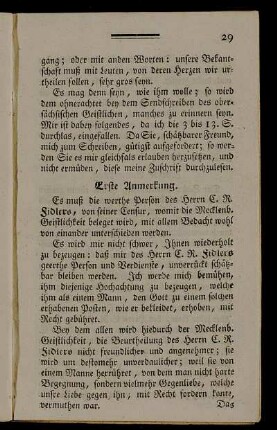 29
gang; oder mit andern Worten: unsere Bekant-
schaft muß mit Leuten, von deren Herzen wir ur-
theilen sollen, sehr gros seyn.
Es mag denn seyn, wie ihm wolle; so wird
dem ohnerachtet bey dem Sendschreiben des ober-
sächsischen Geistlichen, manches zu erinnern seyn.
Mir ist dabey folgendes, da ich die 3 bis 13. S.
durchlas, eingefallen. Da Sie, schätzbarer Freund,
mich zum Schreiben, gütigst aufgefordert; so wer-
den Sie es mir gleichfals erlauben herzusetzen, und
nicht ermüden, diese meine Zuschrift durchzulesen.
Erste Anmerkung.
Es muß die werthe Person des Herrn C. R.
Fidlers, von seiner Censur, womit die Mecklenb.
Geistlichkeit beleget wird, mit allem Bedacht wohl
von einander unterschieden werden.
Es wird mir nicht schwer, Ihnen wiederholt
zu bezeugen: daß mir des Herrn C. R. Fidlers
geerthe Person und Verdienste, unverrückt schätz-
bar bleiben werden. Ich werde mich bemühen,
ihm diejenige Hochachtung zu bezeugen, welche
ihm als einem Mann, den Gott zu einem solchen
erhabenen Posten, wie er bekleidet, erhoben, mit
Recht gebühret.
Bey dem allen wird hiedurch der Mecklenb.
Geistlichkeit, die Beurtheilung des Herrn C. R.
Fidlers nicht freundlicher und angenehmer; sie
wird um destomehr unverdaulicher; weil sie von
einem Manne herrühret, von dem man nicht harte
Begegnung, sondern vielmehr Gegenliebe, welche
unsre Liebe gegen ihn, mit Recht fordern konte,
vermuthen war.
Das